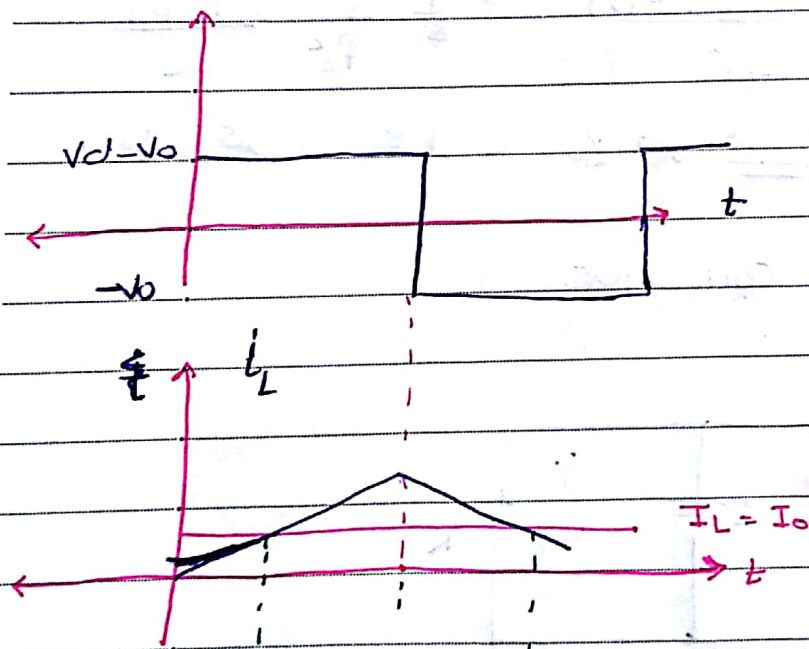 Vd-Vo
t
-Vo
i_L
I_L = I_o
t